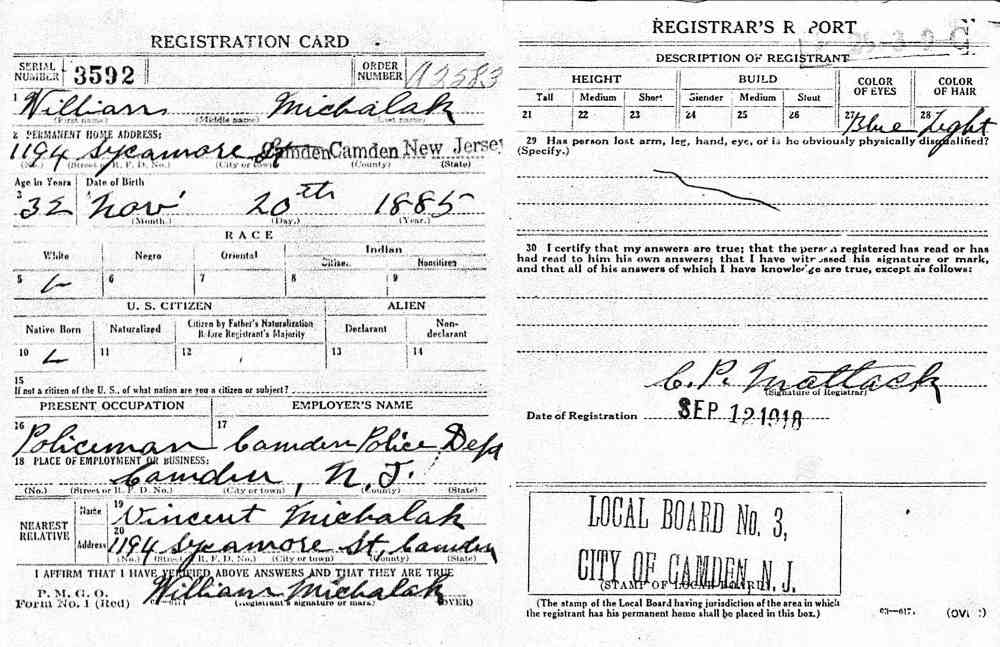 REGISTRATION CARD
SERIAL NUMBER 3592 ORDER NUMBER A2583
1 William Michalak
(First name) (Middle name) (Last name)
2 PERMANENT HOME ADDRESS:
1194 Sycamore St Camden Camden New Jersey
(No.) (Street or R. F. D. No.) (City or town) (County) (State)
Age in Years Date of Birth
3 32 Nov 20th 1885
(Month.) (Day.) (Year.)
RACE
White Negro Oriental Indian
Citizen Noncitizen
5 6 7 8 9
U. S. CITIZEN ALIEN
Native Born Naturalized Citizen by Father's Naturalization Before Registrant's Majority Declarant Non-declarant
10 11 12 13 14
15
If not a citizen of the U. S., of what nation are you a citizen or subject?
PRESENT OCCUPATION EMPLOYER'S NAME
16 Policeman 17 Camden Police Dept
18 PLACE OF EMPLOYMENT OR BUSINESS:
Camden, N. J.
(No.) (Street or R. F. D. No.) (City or town) (County) (State)
NEAREST RELATIVE Name 19 Vincent Michalak
Address 20 1194 Sycamore St, Camden
(No.) (Street or R. F. D. No.) (City or town) (County) (State)
I AFFIRM THAT I HAVE VERIFIED ABOVE ANSWERS AND THAT THEY ARE TRUE
P. M. G. O.
Form No. 1 (Red) William Michalak
(Registrant's signature or mark) (OVER)
REGISTRAR'S REPORT
DESCRIPTION OF REGISTRANT
HEIGHT BUILD COLOR OF EYES COLOR OF HAIR
Tall Medium Short Slender Medium Stout
21 22 23 24 25 26 27 Blue 28 Light
29 Has person lost arm, leg, hand, eye, or is he obviously physically disqualified?
(Specify.)
30 I certify that my answers are true; that the person registered has read or has
had read to him his own answers; that I have witnessed his signature or mark,
and that all of his answers of which I have knowledge are true, except as follows:
C. P. Mattack
(Signature of Registrar)
Date of Registration SEP 12 1918
LOCAL BOARD No. 3,
CITY OF CAMDEN, N. J.
(STAMP OF LOCAL BOARD)
(The stamp of the Local Board having jurisdiction of the area in which
the registrant has his permanent home shall be placed in this box.)
03—617. (OVER)